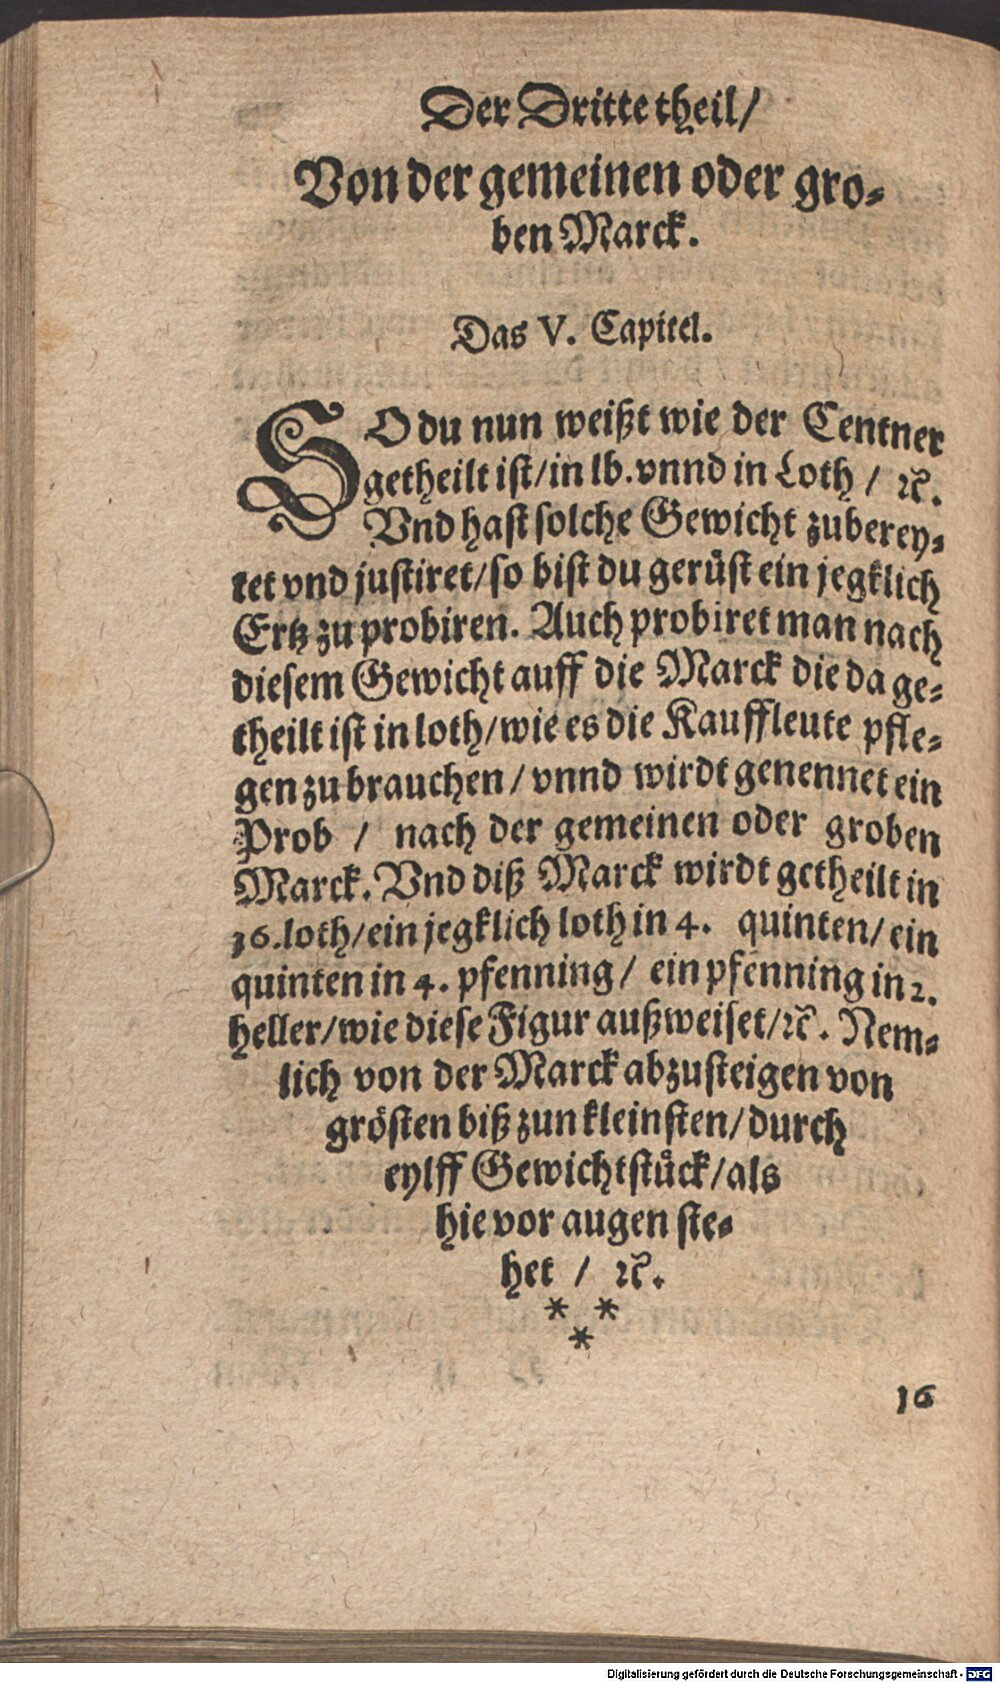 Der Dritte theil/
Von der gemeinen oder gro⸗
ben Marck.
Das V. Capitel.
SO du nun weißt wie der Centner
getheilt ist/in lb. vnnd in Loth / ꝛc̃.
Vnd hast solche Gewicht zuberey⸗
tet vnd justiret/so bist du gerüst ein jegklich
Ertz zu probiren. Auch probiret man nach
diesem Gewicht auff die Marck die da ge⸗
theilt ist in loth/wie es die Kauffleute pfle⸗
gen zu brauchen/vnnd wirdt genennet ein
Prob / nach der gemeinen oder groben
Marck. Vnd diß Marck wirdt getheilt in
16.loth/ein jegklich loth in 4. quinten/ein
quinten in 4. pfenning/ ein pfenning in 2.
heller/wie diese Figur außweiset/ꝛc̃. Nem⸗
lich von der Marck abzusteigen von
grösten biß zun kleinsten/durch
eylff Gewichtstück/als
hie vor augen ste⸗
het / ꝛc̃.
* *
*
16
Digitalisierung gefördert durch die Deutsche Forschungsgemeinschaft - DFG